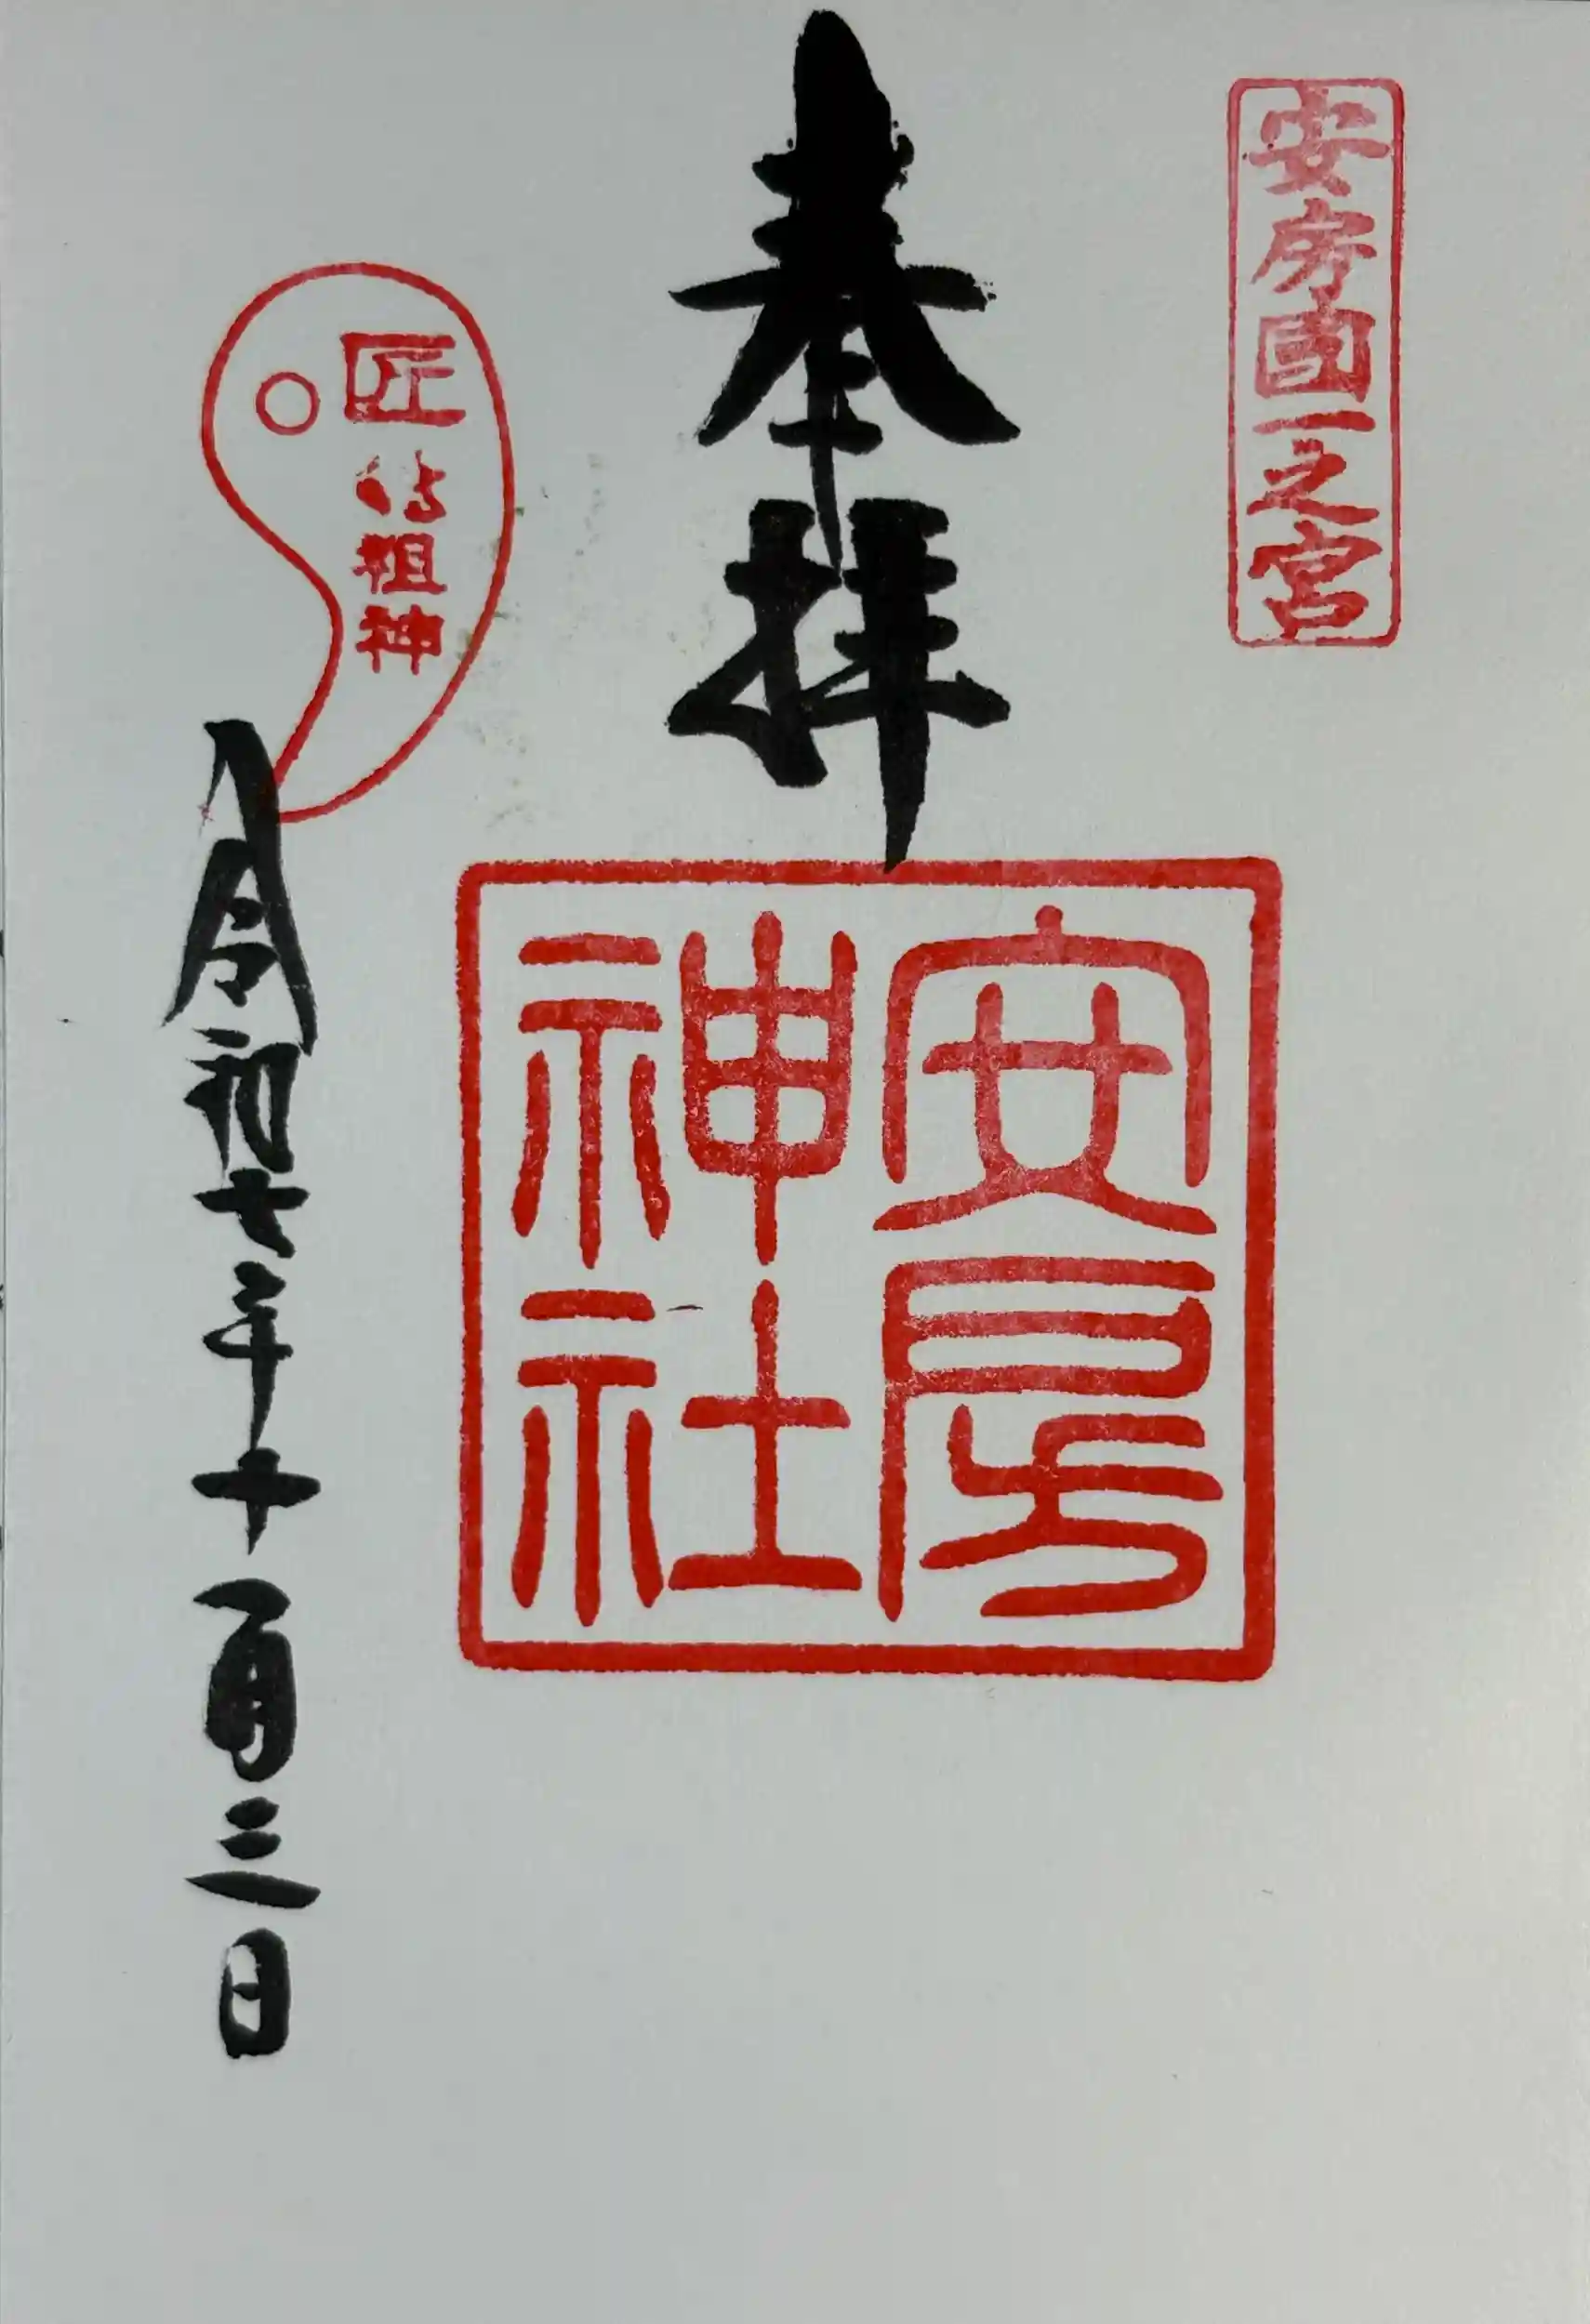 安房國一之宮
奉拝
安房
神社
匠
祖神
令和七年十一月三日